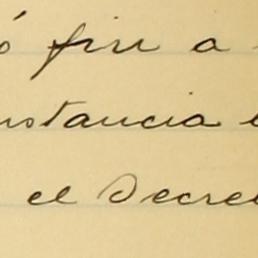 ó fin a
nstancia
el Secre